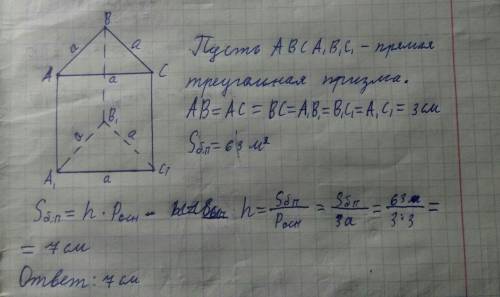 B
a a
A a C
B₁
a a
A₁ a C₁
Пусть ABCA₁B₁C₁ - прямая
треугальная призма.
AB = AC = BC = A₁B₁ = B₁C₁ = A₁C₁ = 3 см
Sб.п = 63 м²
Sб.п = h · Pосн - h = Sб.п / Pосн = Sб.п / 3a = 63 / 3·3 =
= 7 см
Ответ: 7 см